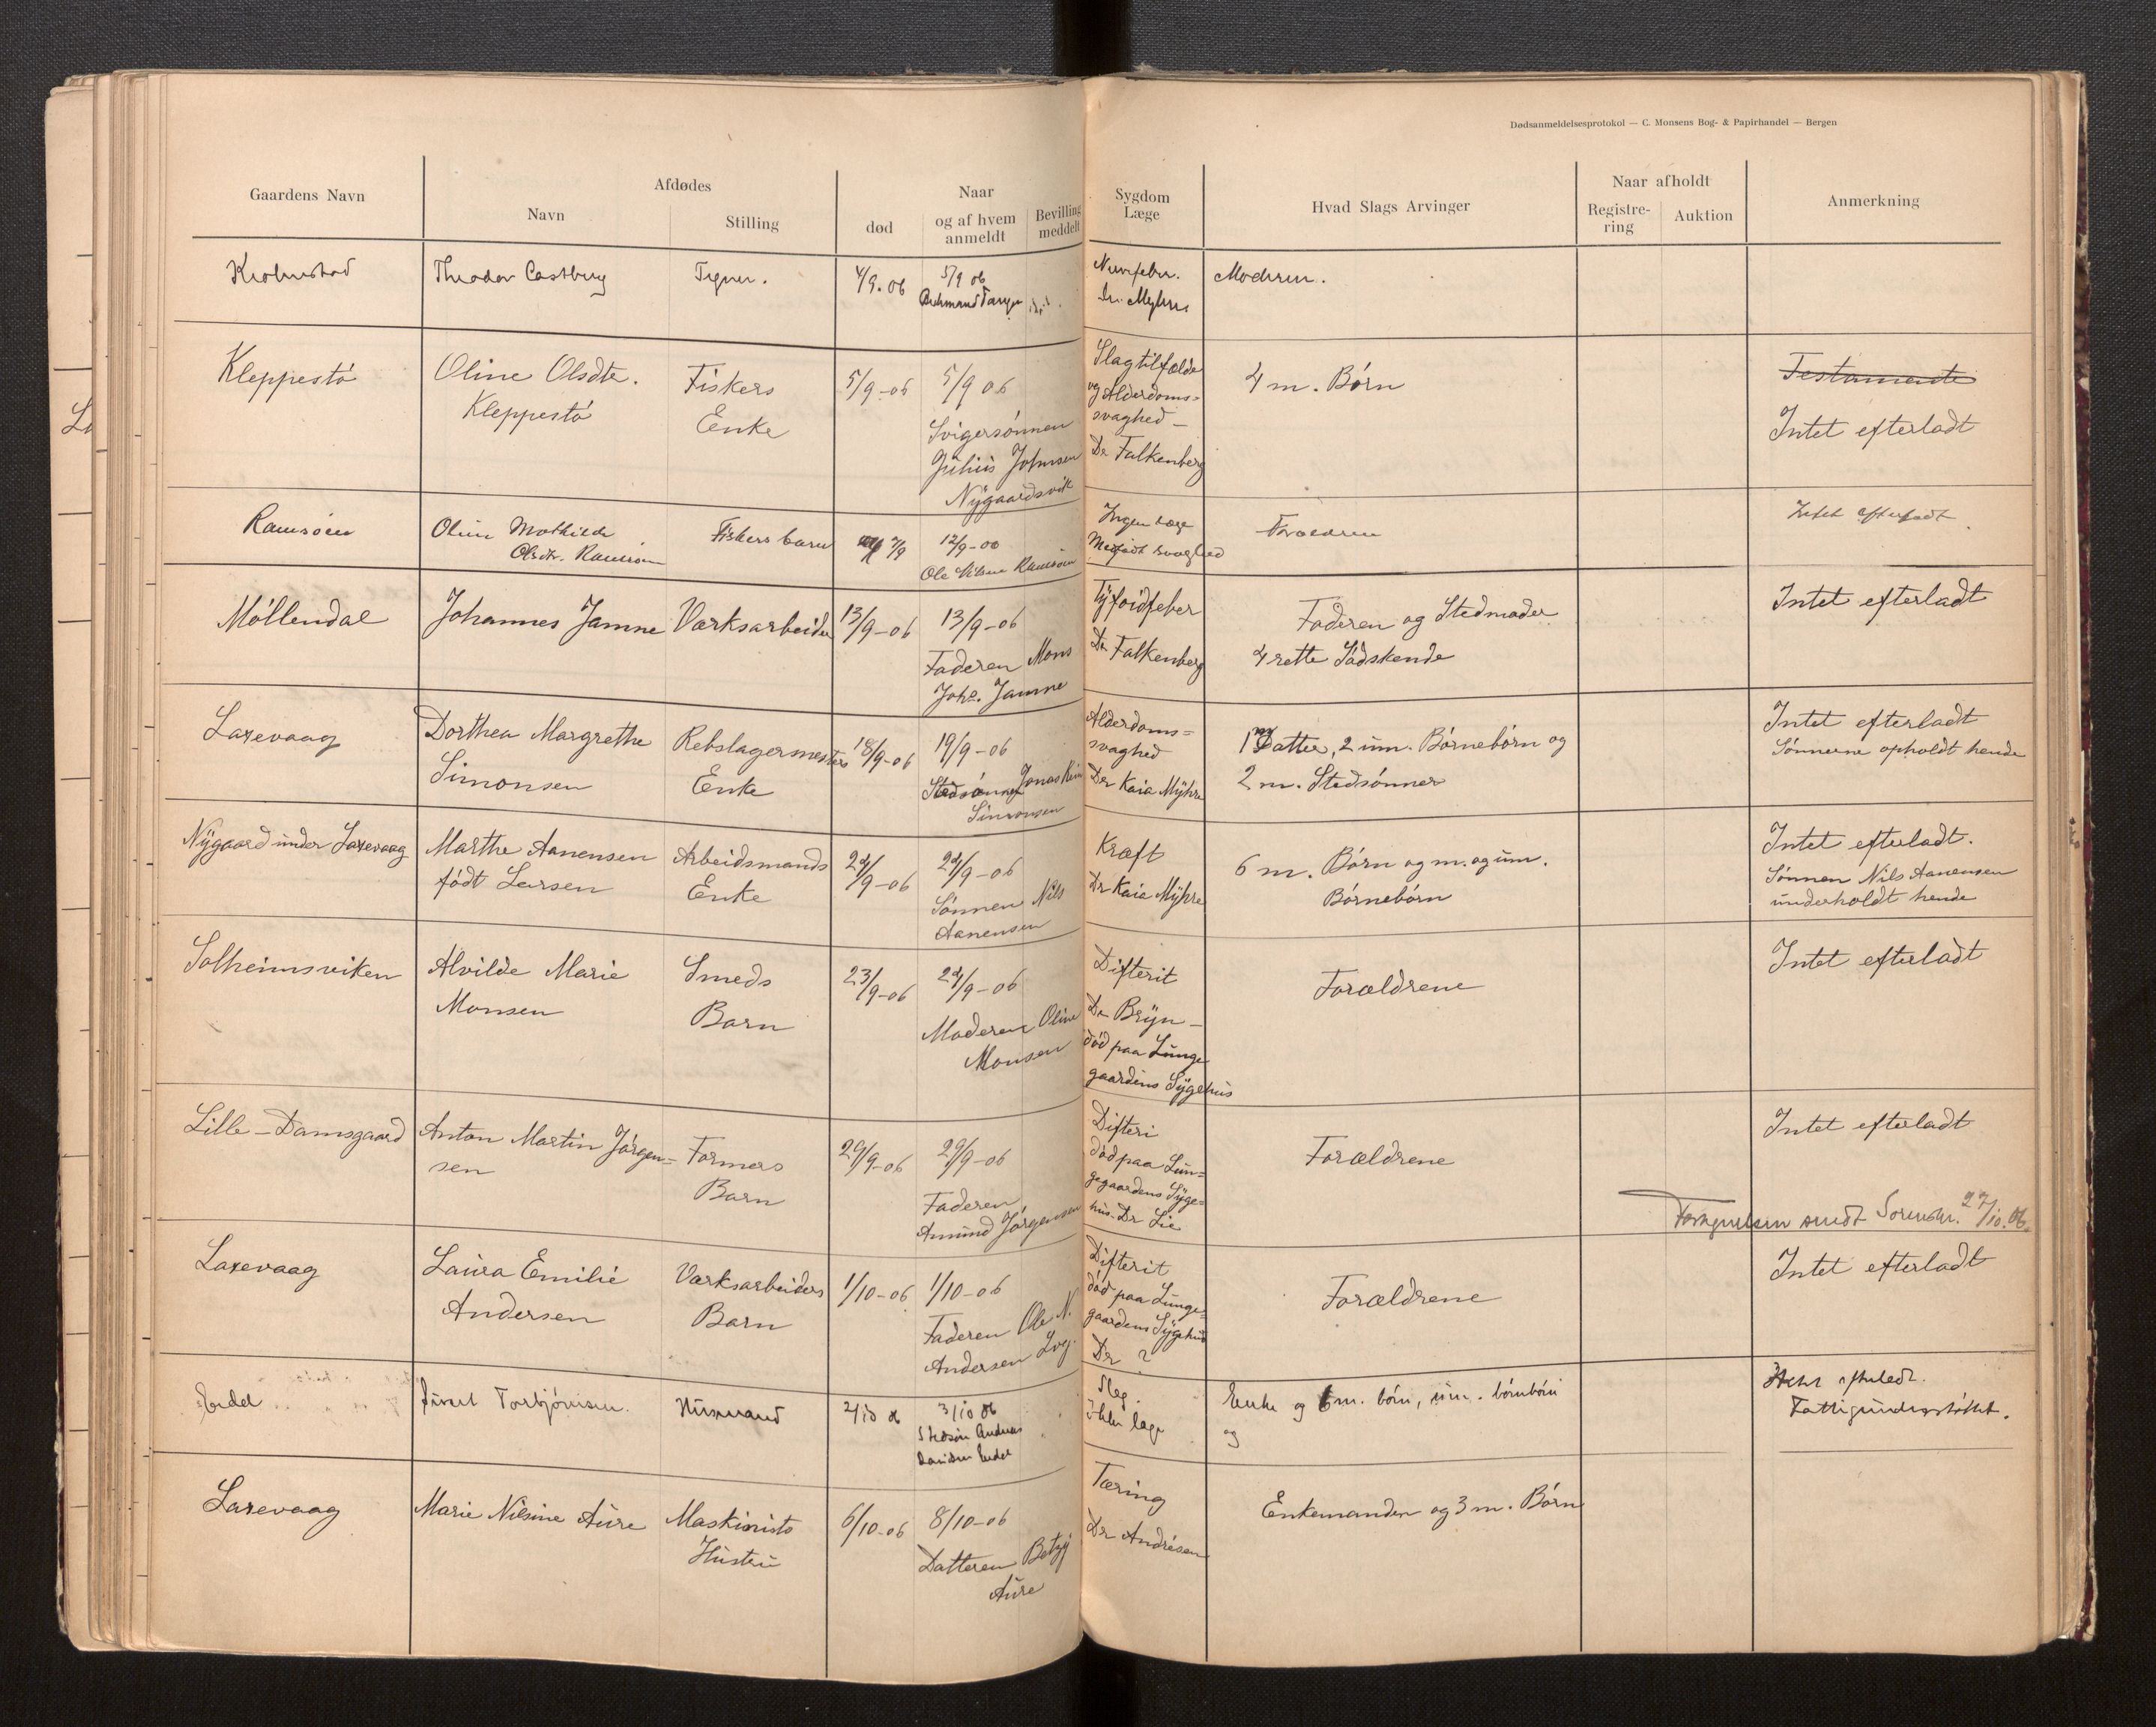 Dødsanmeldelsesprotokol — C. Monsens Bog- & Papirhandel — Bergen
Gaardens Navn
Afdødes
Navn
Stilling
død
Naar
og af hvem
anmeldt
Bevilling
meddelt
Sygdom
Læge
Hvad Slags Arvinger
Naar afholdt
Registre-
ring
Auktion
Anmerkning
Theodor Castberg
4/9. 06
5/9 06
Nervefeber.
Dr. Myhre
Moderen.
Kleppestö
Oline Olsdtr.
Kleppestö
Fiskers
Enke
5/9 -06
5/9 06
Svigersönnen
Julius Johnsen
Nygaardsvik
Slagtilfælde
og Alderdoms=
svaghed –
Dr Falkenberg
4 m. Börn
Testamente
Intet efterladt
Ramsöen
Olsdtr. Ramsöen
Fiskers barn
7/9
12/9-06
Ingen læge
Medfödt svaghed
Forældrene
Intet efterladt.
Möllendal
Johannes Jamne
Værksarbeider
13/9-06
13/9-06
Faderen Mons
Johs. Jamne
Tyfoidfeber
Dr Falkenberg
Faderen og Stedmoder
4 rette Södskende
Intet efterladt
Laxevaag
Dorthea Margrethe
Simonsen
Rebslagermesters
Enke
18/9-06
19/9-06
Stedsönnen Jonas
Simonsen
Alderdoms=
svaghed
Dr Kaia Myhre
1 Datter, 2 um. Börnebörn og
2 m. Stedsönner
Intet efterladt
Sönnerne opholdt hende
Nygaard under Laxevaag
Marthe Aanensen
födt Larsen
Arbeidsmands
Enke
24/9-06
24/9-06
Sönnen Nils
Aanensen
Kræft
Dr Kaia Myhre
6 m. Börn og m. og um.
Börnebörn
Intet efterladt.
Sönnen Nils Aanensen
underholdt hende
Solheimsviken
Alvilde Marie
Monsen
Smeds
Barn
23/9-06
24/9-06
Moderen Oline
Monsen
Difterit
Dr Bryn –
död paa Lunge
gaardens Sygehus
Forældrene
Intet efterladt
Lille-Damsgaard
Anton Martin Jörgen=
sen
Formers
Barn
29/9-06
29/9-06
Faderen
Amund Jörgensen
Difteri
död paa Lun=
gegaardens Syge=
hus. Dr Lie
Forældrene
Intet efterladt
sendt Sorenskr. 27/10.06.
Laxevaag
Laura Emilie
Andersen
Værksarbeiders
Barn
1/10-06
1/10-06
Faderen Ole N.
Andersen Lvg.
Difterit
död paa Lunge=
gaardens Sygehus
Dr ?
Forældrene
Intet efterladt
Endal
Sivert Torbjörnsen.
Husmand
2/10 06
3/10 06
Stedsön Andreas
Davidsen Endal
Slag.
Ikke læge
Enke og 6 m. börn, um. börnbörn
og
Intet efterladt.
Fattigunderstöttet.
Laxevaag
Marie Nilsine Aure
Maskinists
Hustru
6/10-06
8/10-06
Datteren Betzy
Aure
Tæring
Dr Andrésen
Enkemanden og 3 m. Börn